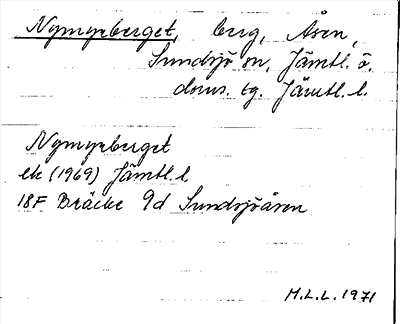 Nymyrberget, berg, Åsen,
Sundsjö sn, Jämtl. ö.
doms. tg. Jämtl. l.
Nymyrberget
ek (1969) Jämtl. l
18F Bräcke 9d Sundsjöåsen
M.L.L. 1971